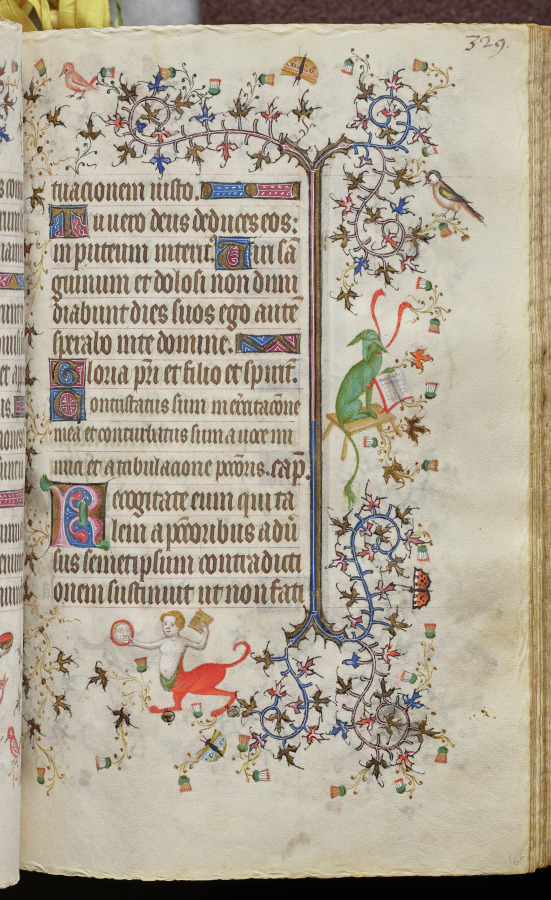 329.
tuacionem iusto.
Tu uero deus deduces eos:
in puteum interit᷒. Uiri sã
guinum et dolosi non dimi
diabunt dies suos ego autẽ
sperabo in te domine.
Gloria pr̃i et filio et spirit᷒.
Contristatus sum in exercitacõne
mea et conturbatus sum a uoce ini
mici et a tribulacione pcc̃oris. cap̃.
Recogitate eum qui ta
lem a pcc̃oribus adũ
sus semetipsum contradicti
onem sustinuit ut non fati